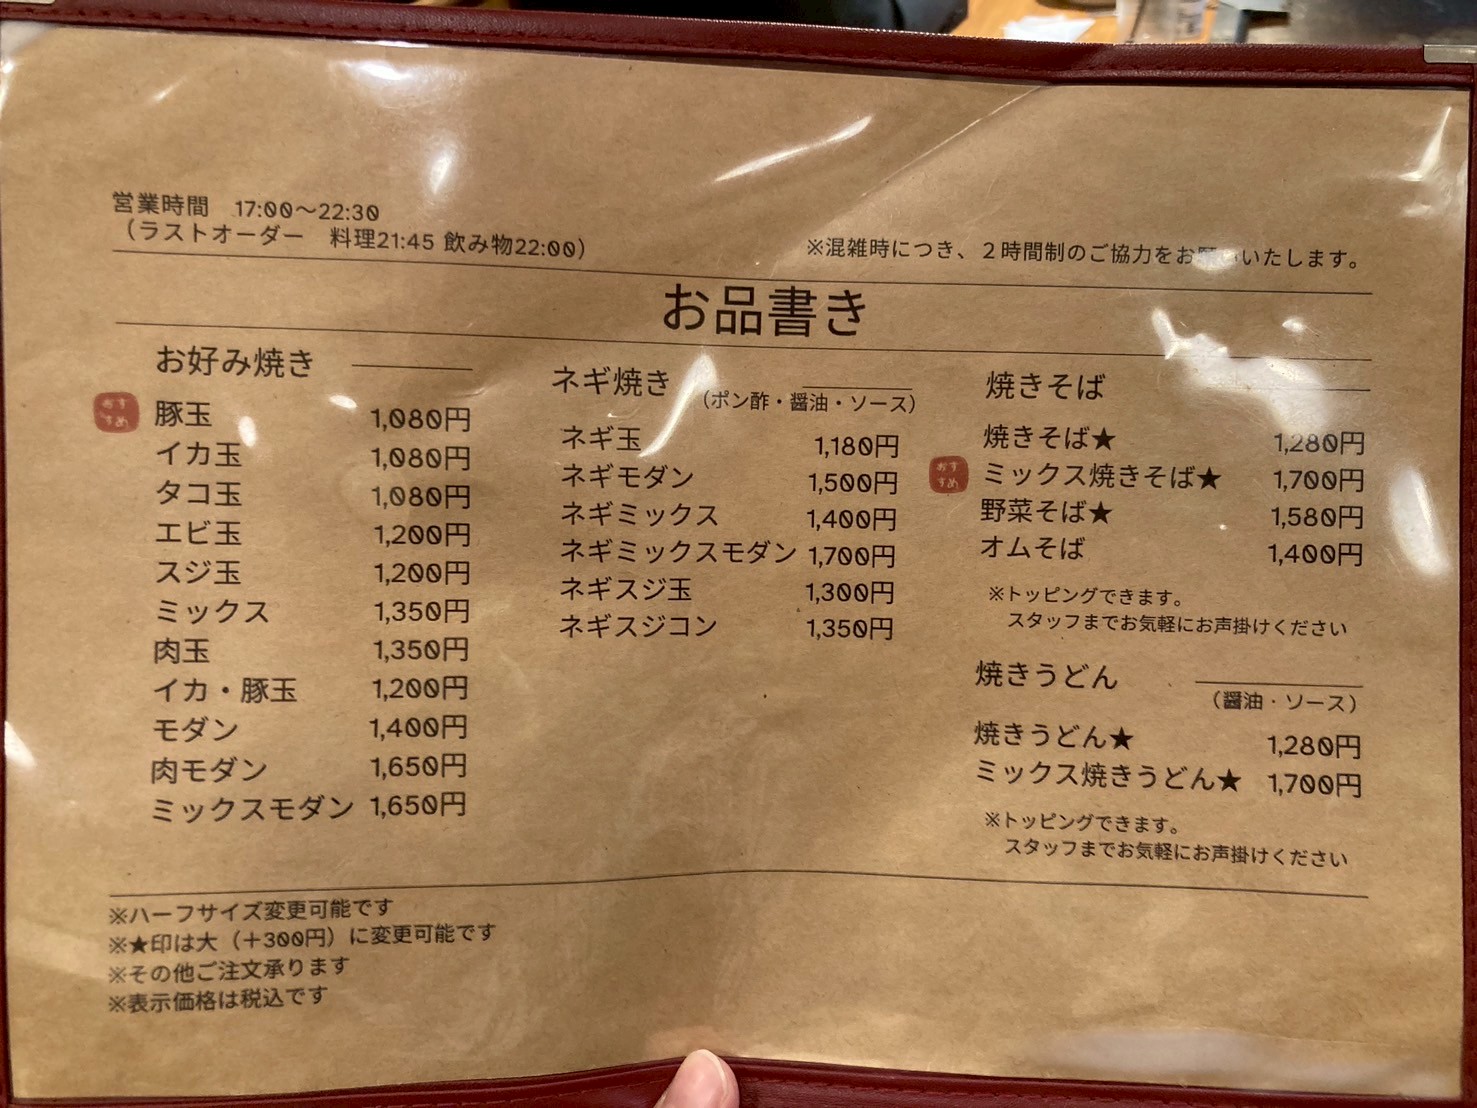 営業時間　17:00〜22:30
（ラストオーダー　料理21:45 飲み物22:00）
※混雑時につき、２時間制のご協力をお願いいたします。
お品書き
お好み焼き
おすすめ
豚玉 1,080円
イカ玉 1,080円
タコ玉 1,080円
エビ玉 1,200円
スジ玉 1,200円
ミックス 1,350円
肉玉 1,350円
イカ・豚玉 1,200円
モダン 1,400円
肉モダン 1,650円
ミックスモダン 1,650円
ネギ焼き
（ポン酢・醤油・ソース）
ネギ玉 1,180円
ネギモダン 1,500円
ネギミックス 1,400円
ネギミックスモダン 1,700円
ネギスジ玉 1,300円
ネギスジコン 1,350円
焼きそば
焼きそば★ 1,280円
おすすめ
ミックス焼きそば★ 1,700円
野菜そば★ 1,580円
オムそば 1,400円
※トッピングできます。
スタッフまでお気軽にお声掛けください
焼きうどん
（醤油・ソース）
焼きうどん★ 1,280円
ミックス焼きうどん★ 1,700円
※トッピングできます。
スタッフまでお気軽にお声掛けください
※ハーフサイズ変更可能です
※★印は大（＋300円）に変更可能です
※その他ご注文承ります
※表示価格は税込です